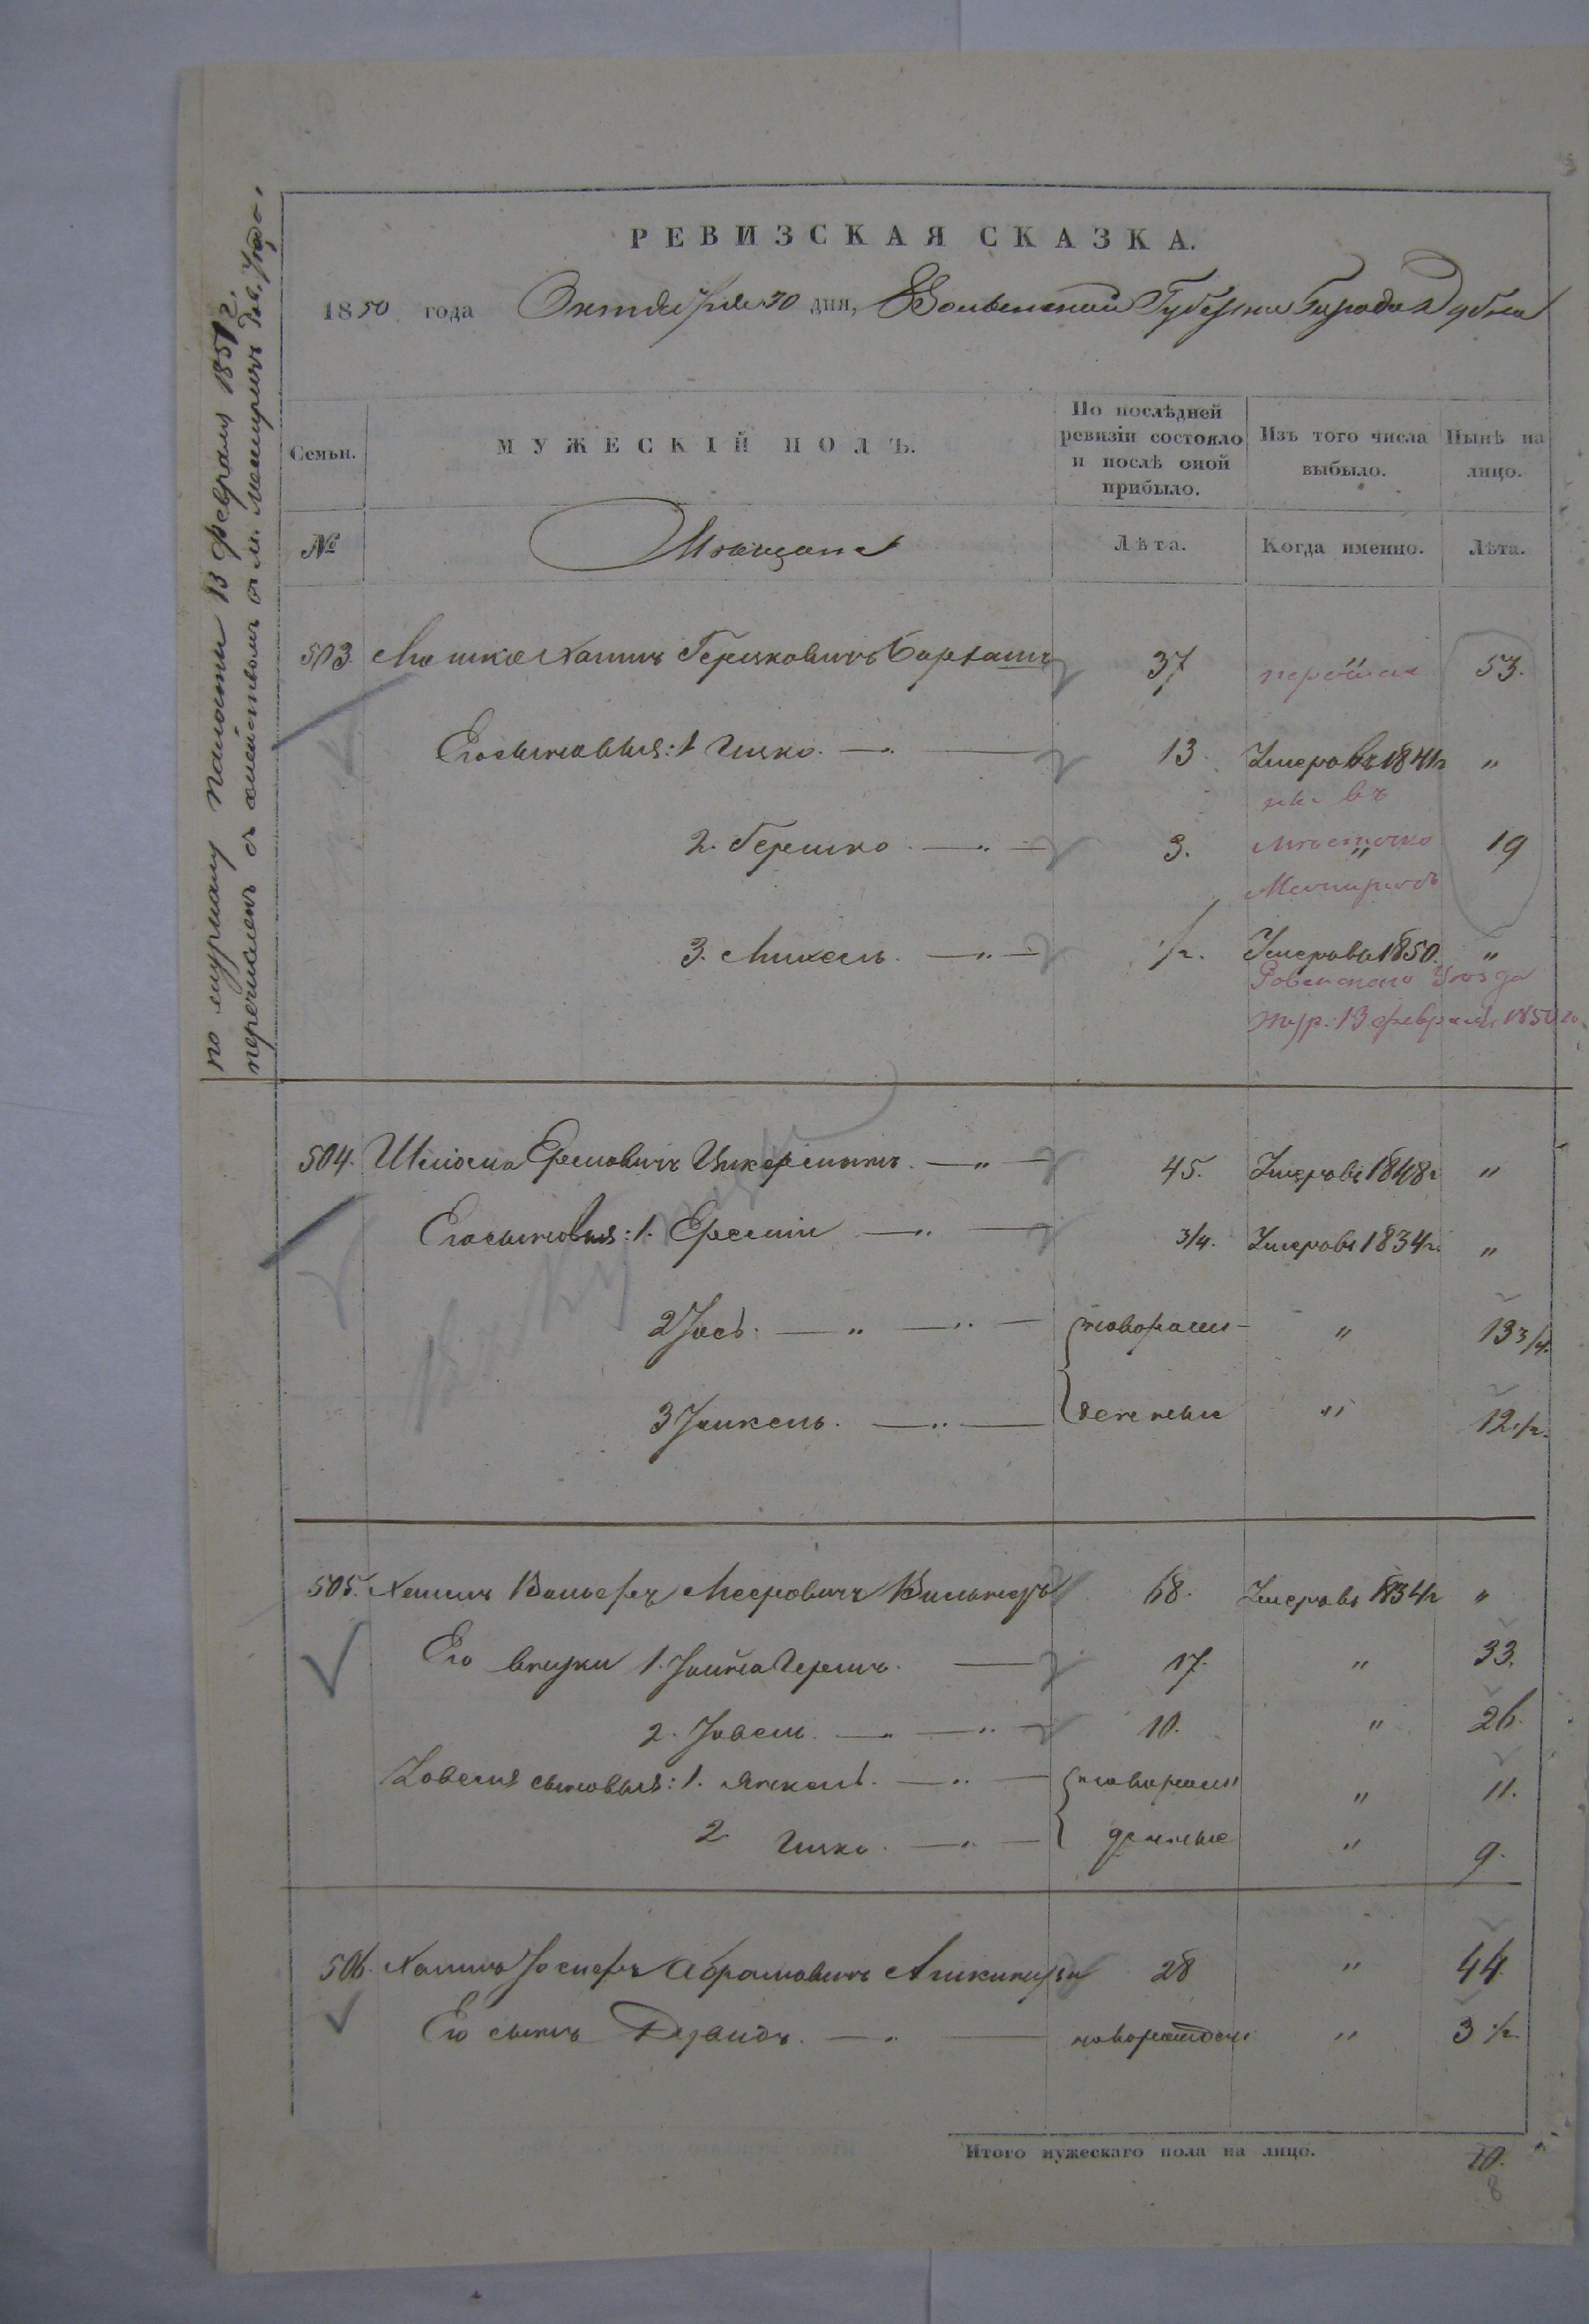 РЕВИЗСКАЯ СКАЗКА.
1850 года Октября 30 дня, Волынской Губернии Города Дубна
Семьи. МУЖЕСКІЙ ПОЛЪ. По послѣдней ревизіи состояло и послѣ оной прибыло. Изъ того числа выбыло. Нынѣ на лицо.
№ Мѣщане Лѣта. Когда именно. Лѣта.
по журналу палаты 13 февраля 1851
перечислен съ семействомъ въ м. Межиричъ Ров. уѣзда.
503. Мошко Хаимъ Гершковичъ 37 " 53.
Его сыновья: 1 Ицко. 13. Умеръ въ 1841 г "
въ
2. Гершко 3. " 19
мѣстечко
Межиричъ
3. Михель. 1/2. Умеръ въ 1850. "
Ровенскаго уѣзда
жур. 13 февраля 1850 го
504. Шліома Ерсловичъ 45. Умеръ въ 1848 г "
Его сыновья: 1. 3/4. Умеръ въ 1834 г. "
2 Іось. новорож- " 13 3/4.
3 Янкель. денные " 12 1/2.
505. Мееровичъ 68. Умеръ въ 1834 г "
Его внуки 1. 17. " 33.
2. 10. " 26.
сыновья: 1. новорож " 11.
2 Ицко. денные " 9.
506. Хаимъ Іосифъ Абрамовичъ 28 " 44.
Его сынъ Дувидъ. новорожден " 3 1/2
Итого мужескаго пола на лицо. 10.
8